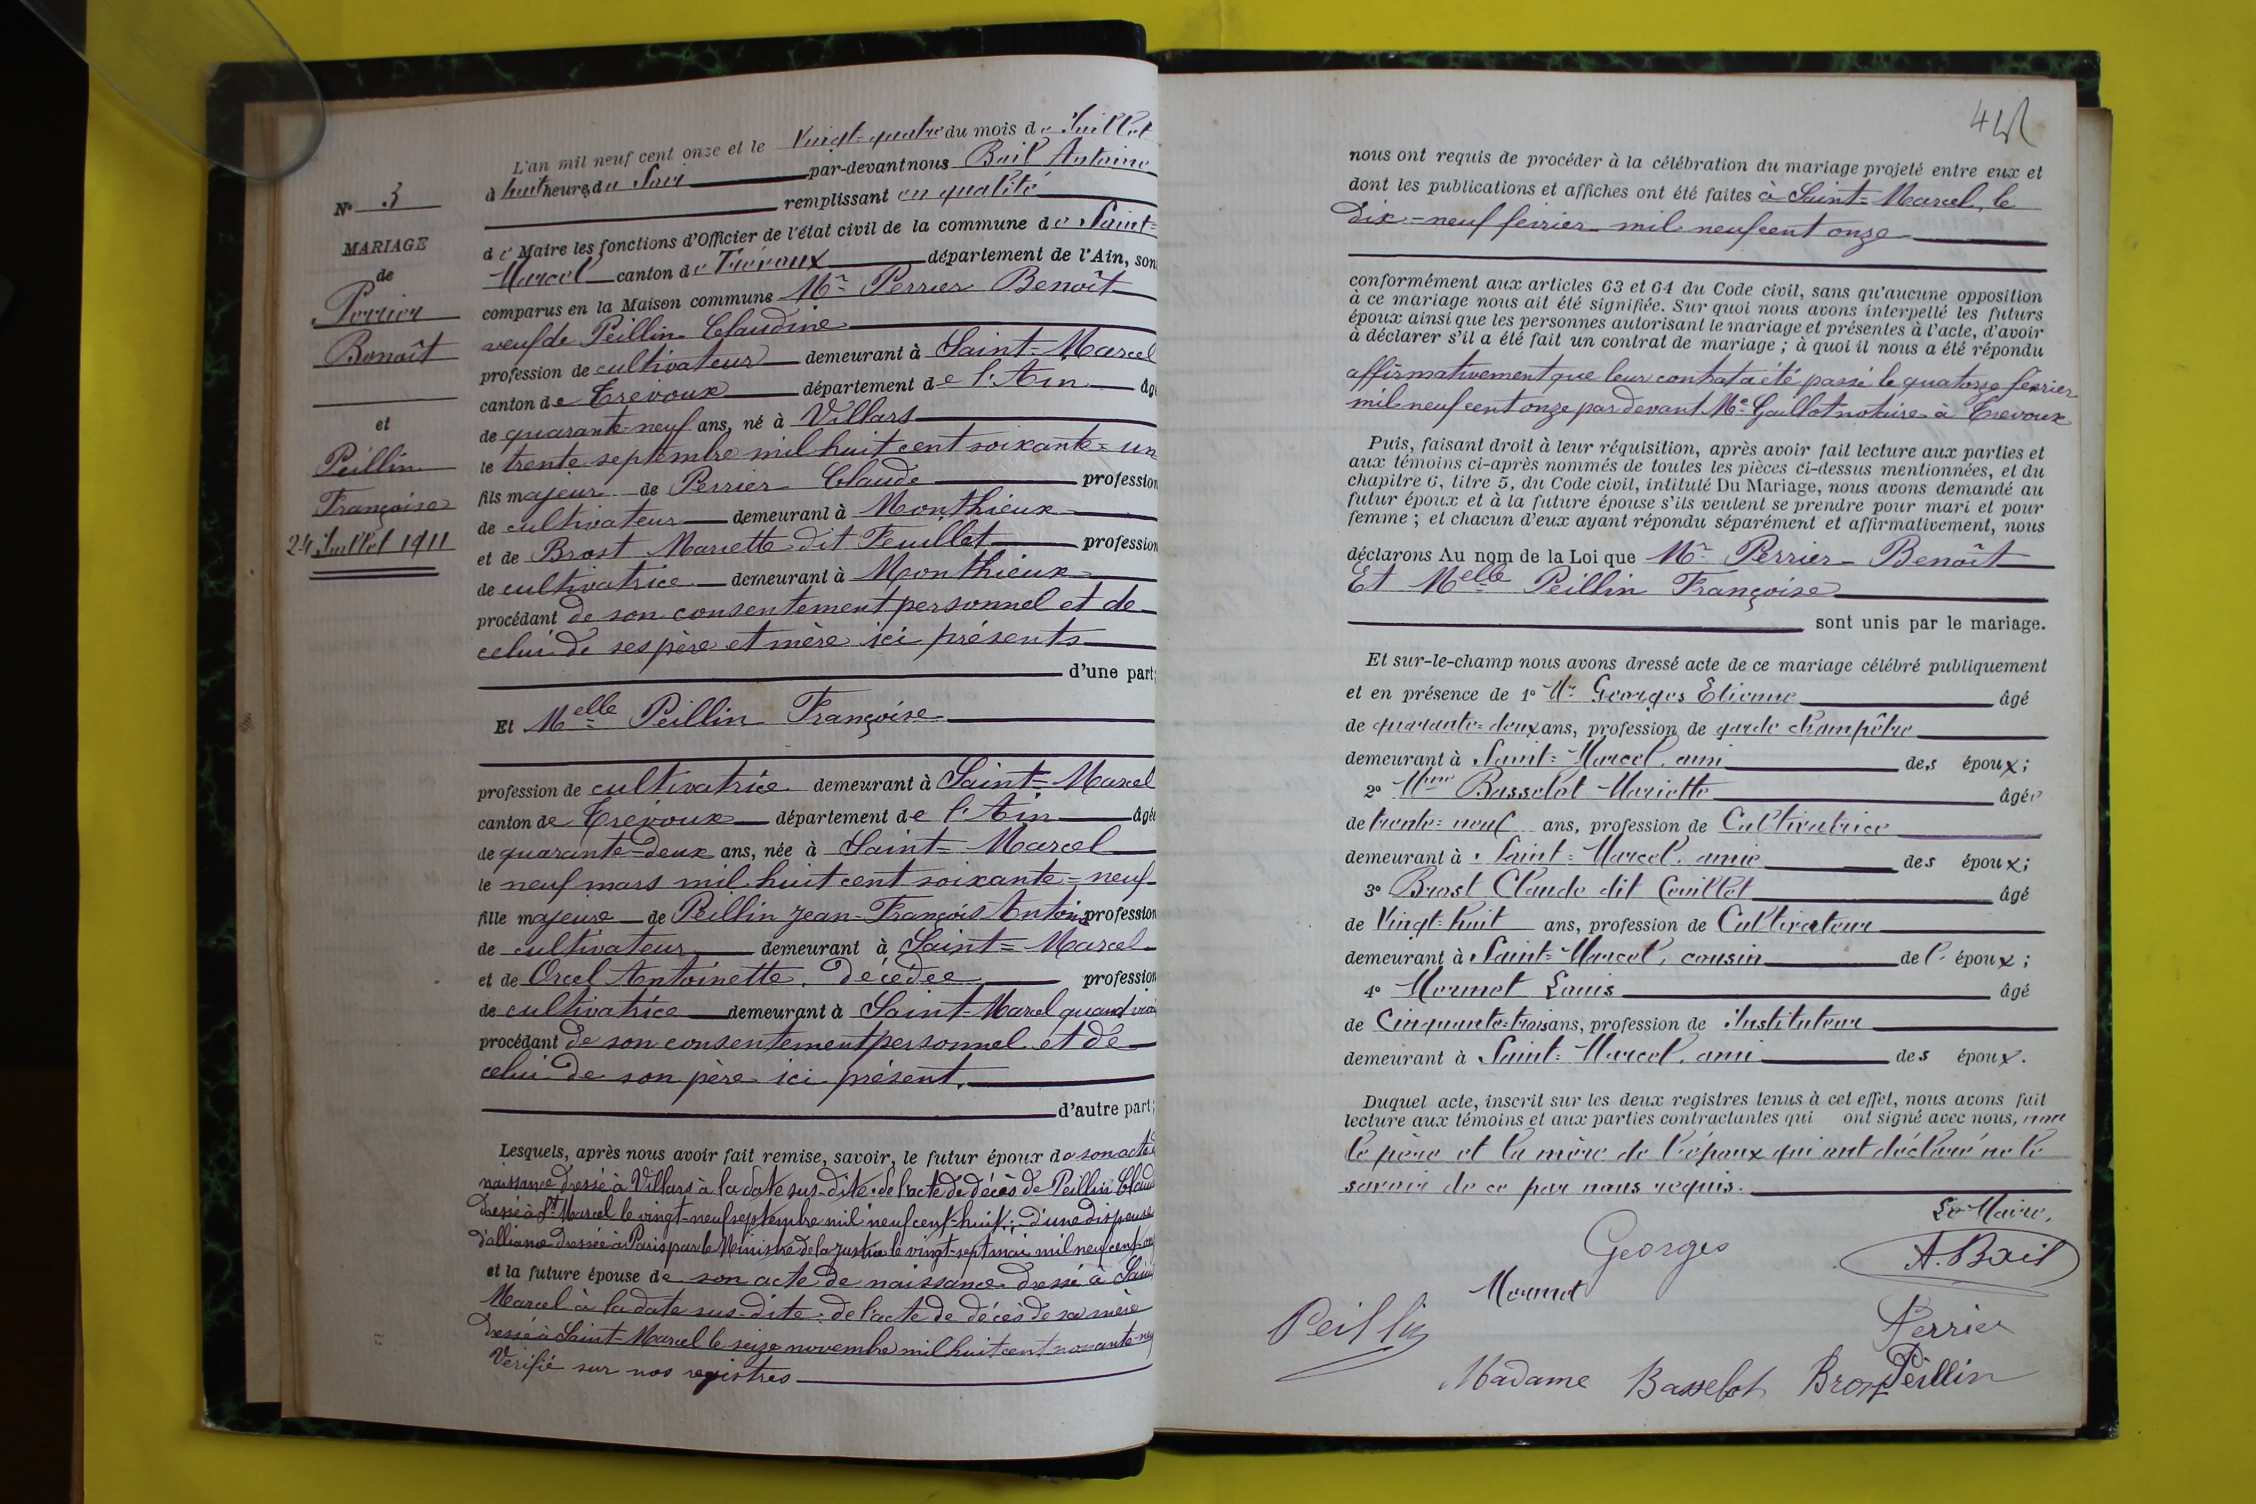 N° 3
MARIAGE
de
Perrier
Benoît
et
Peillin
Françoise
24 Juillet 1911
L'an mil neuf cent onze et le Vingt-quatre du mois de Juillet
à huit heures du Soir par-devant nous Bail Antoine
remplissant en qualité
de Maire les fonctions d'Officier de l'état civil de la commune de Saint-
Marcel canton de Trévoux département de l'Ain, son
comparus en la Maison commune Mr Perrier Benoît
veuf de Peillin Claudine
profession de cultivateur demeurant à Saint-Marcel
canton de Trévoux département de l'Ain âgé
de quarante-neuf ans, né à Villars
le trente septembre mil huit cent soixante-un
fils majeur de Perrier Claude profession
de cultivateur demeurant à Monthieux
et de Brost Mariette dit Feuillet profession
de cultivatrice demeurant à Monthieux
procédant de son consentement personnel et de
celui de ses père et mère ici présents
d'une part;
Et Melle Peillin Françoise
profession de cultivatrice demeurant à Saint-Marcel
canton de Trévoux département de l'Ain âgée
de quarante-deux ans, née à Saint-Marcel
le neuf mars mil huit cent soixante-neuf
fille majeure de Peillin Jean-François Antoine profession
de cultivateur demeurant à Saint-Marcel
et de Orcel Antoinette, décédée profession
de cultivatrice demeurant à Saint-Marcel quand
procédant de son consentement personnel et de
celui de son père ici présent.
d'autre part;
Lesquels, après nous avoir fait remise, savoir, le futur époux de son acte de
naissance dressé à Villars à la date sus-dite; de l'acte de décès de Peillin Claud
dressé à St Marcel le vingt-neuf septembre mil neuf cent-huit; d'une dispense
d'alliance dressée à Paris par le Ministre de la Justice le vingt-sept mai mil neuf cent-on
et la future épouse de son acte de naissance dressé à Saint
Marcel à la date sus-dite; de l'acte de décès de sa mère
dressé à Saint-Marcel le seize novembre mil huit cent nonante-
Vérifié sur nos registres
nous ont requis de procéder à la célébration du mariage projeté entre eux et
dont les publications et affiches ont été faites à Saint-Marcel, le
dix-neuf février mil neuf cent onze
conformément aux articles 63 et 64 du Code civil, sans qu'aucune opposition
à ce mariage nous ait été signifiée. Sur quoi nous avons interpellé les futurs
époux ainsi que les personnes autorisant le mariage et présentes à l'acte, d'avoir
à déclarer s'il a été fait un contrat de mariage; à quoi il nous a été répondu
affirmativement que leur contrat a été passé le quatorze février
mil neuf cent onze par devant Me Gaillot notaire à Trévoux
Puis, faisant droit à leur réquisition, après avoir fait lecture aux parties et
aux témoins ci-après nommés de toutes les pièces ci-dessus mentionnées, et du
chapitre 6, titre 5, du Code civil, intitulé Du Mariage, nous avons demandé au
futur époux et à la future épouse s'ils veulent se prendre pour mari et pour
femme; et chacun d'eux ayant répondu séparément et affirmativement, nous
déclarons Au nom de la Loi que Mr Perrier Benoît
Et Melle Peillin Françoise
sont unis par le mariage.
Et sur-le-champ nous avons dressé acte de ce mariage célébré publiquement
et en présence de 1° Mr Georges Etienne âgé
de quarante-deux ans, profession de garde champêtre
demeurant à Saint-Marcel, ami des époux;
2° Mme Basselot Mariette âgée
de trente-neuf ans, profession de Cultivatrice
demeurant à Saint-Marcel, amie des époux;
3° Brost Claude dit âgé
de Vingt-huit ans, profession de Cultivateur
demeurant à Saint-Marcel, cousin de l'époux;
4° Mermet Louis âgé
de Cinquante-trois ans, profession de Instituteur
demeurant à Saint-Marcel, ami des époux.
Duquel acte, inscrit sur les deux registres tenus à cet effet, nous avons fait
lecture aux témoins et aux parties contractantes qui ont signé avec nous, non
le père et la mère de l'époux qui ont déclaré ne le
savoir de ce par nous requis.
Le Maire,
Georges
A. Bail
Mermet
Peillin
Perrier
Madame Basselot Brost Peillin